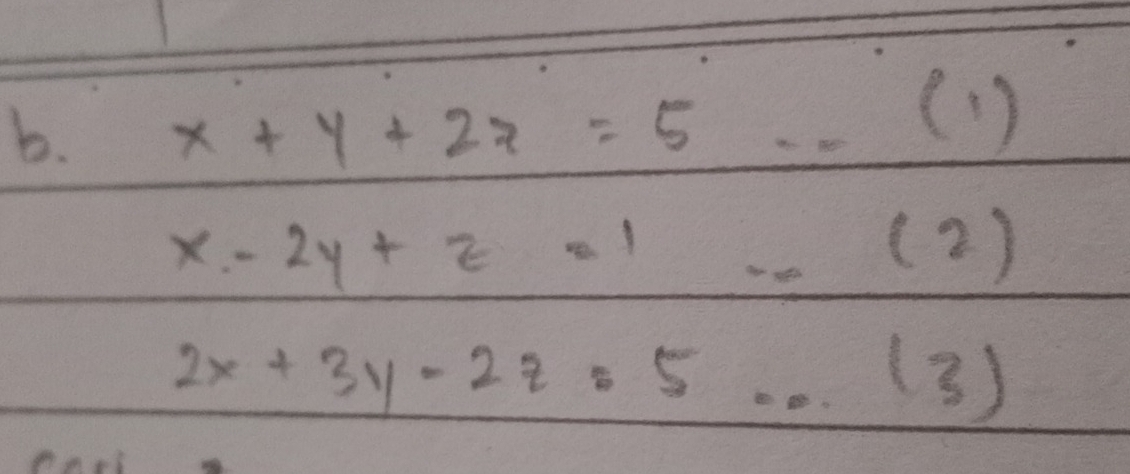 b. x + y + 2z = 5 ... (1)
x - 2y + z = 1 ... (2)
2x + 3y - 2z = 5 ... (3)